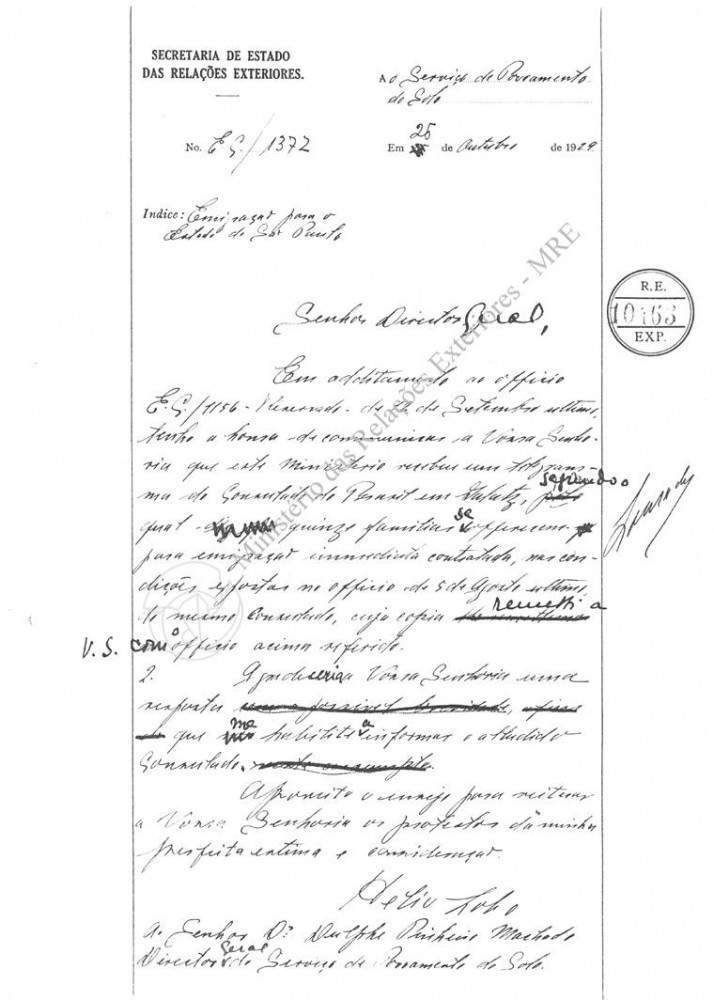 SECRETARIA DE ESTADO
DAS RELAÇÕES EXTERIORES.
Ao Serviço de Povoamento
do Solo
No. E.C./1372
Em 25 de Outubro de 1929.
Indice: Emigraçaõ para o
Estado de São Paulo
R.E.
10463
EXP.
Senhor Director Geral,
Em additamento ao officio
E.C./1156 - Reservado - de de Setembro ultimo,
tenho a honra de communicar a Vossa Senho-
ria que este Ministerio recebeu um telegram-
ma do Consulado do Brasil em segundo o
qual quinze familias se offerecem
para emigraçaõ immediata contratada, nas con-
dições expostas no officio de 5 de Agosto ultimo,
do mesmo Consulado, cuja copia remetti a
V. S. com o officio acima referido.
2. Agradeceria a Vossa Senhoria uma
resposta
que me habilite a informar o alludido
Consulado.
Aproveito o ensejo para reiterar
a Vossa Senhoria os protestos da minha
perfeita estima e consideraçaõ.
Helio Lobo
Ao Senhor Dr. Dulphe Pinheiro Machado
Director Geral do Serviço de Povoamento do Solo.
Ministério das Relações Exteriores - MRE